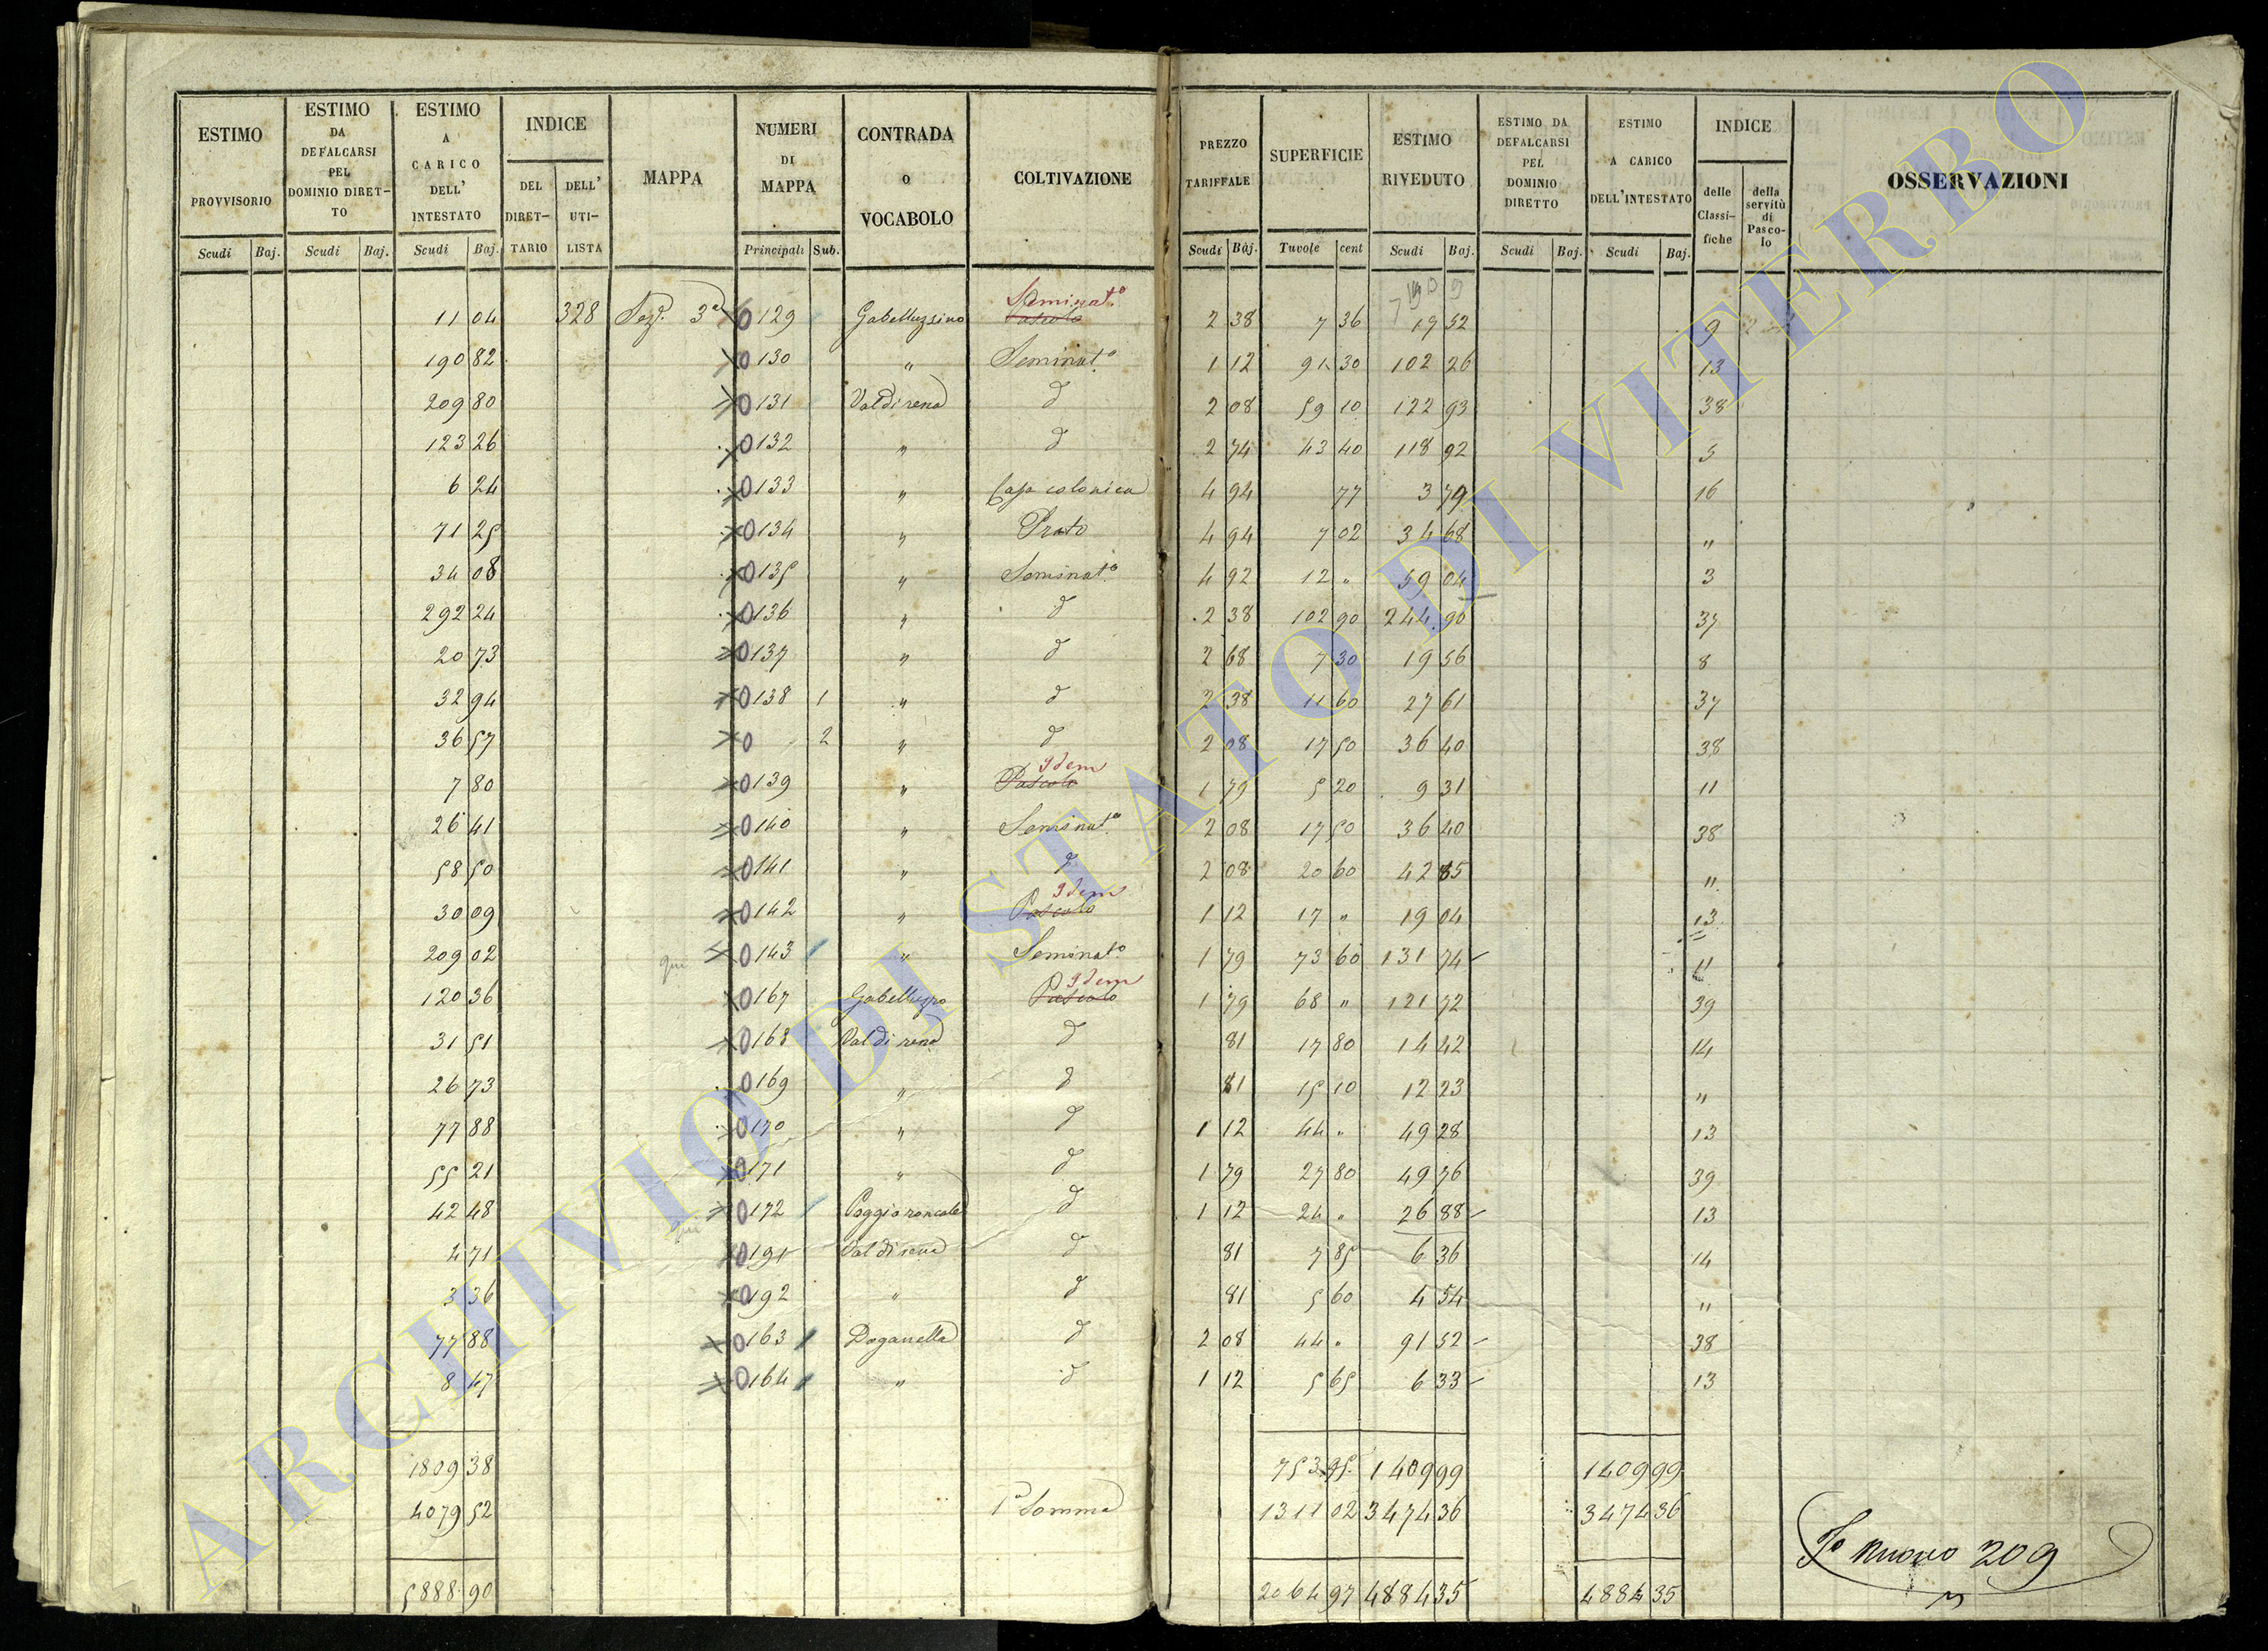 ESTIMO PROVVISORIO Scudi Baj.
ESTIMO DA DEFALCARSI PEL DOMINIO DIRETTO Scudi Baj.
ESTIMO A CARICO DELL' INTESTATO Scudi Baj.
INDICE DEL DIRETTARIO DELL' UTILISTA
MAPPA
NUMERI DI MAPPA Principali Sub.
CONTRADA O VOCABOLO
COLTIVAZIONE
PREZZO TARIFFALE Scudi Baj.
SUPERFICIE Tavole cent
ESTIMO RIVEDUTO Scudi Baj.
ESTIMO DA DEFALCARSI PEL DOMINIO DIRETTO Scudi Baj.
ESTIMO A CARICO DELL'INTESTATO Scudi Baj.
INDICE delle Classifiche della servitù di Pascolo
OSSERVAZIONI
11 04 328 Sez. 3a 129 Gabelluzzino Pascolo Seminat.o 2 38 7 36 17 52 9
190 82 130 " Seminat.o 1 12 91 30 102 26 13
209 80 131 Valdirena d 2 08 59 10 122 93 38
123 26 132 " d 2 74 43 40 118 92 5
6 24 133 " Casa colonica 4 94 77 3 79 16
71 25 134 " Prato 4 94 7 02 34 68 "
34 08 135 " Seminat.o 4 92 12 " 59 04 3
292 24 136 " d 2 38 102 90 244 90 37
20 73 137 " d 2 68 7 30 19 56 8
32 94 138 1 " d 2 38 11 60 27 61 37
36 57 2 " d 2 08 17 50 36 40 38
7 80 139 " Pascolo Idem 1 79 5 20 9 31 11
26 41 140 " Seminat.o 2 08 17 50 36 40 38
58 50 141 " d 2 08 20 60 42 85 "
30 09 142 " Pascolo Idem 1 12 17 " 19 04 13
209 02 qui 143 " Seminat.o 1 79 73 60 131 74 11
120 36 167 Gabelluzzo Pascolo Idem 1 79 68 " 121 72 39
31 51 168 Valdirena d 81 17 80 14 42 14
26 73 169 " d 81 15 10 12 23 "
77 88 170 " d 1 12 44 " 49 28 13
55 21 171 " d 1 79 27 80 49 76 39
42 48 qui 172 Poggio roncole d 1 12 24 " 26 88 13
4 71 191 Valdirena d 81 7 85 6 36 14
3 36 192 " d 81 5 60 4 54 "
77 88 163 Doganella d 2 08 44 " 91 52 38
8 47 164 " d 1 12 5 65 6 33 13
1809 38 753 95 1409 99 1409 99
4079 52 1a Somma 1311 02 3474 36 3474 36
5888 90 2064 97 4884 35 4884 35
Fo nuovo 209
ARCHIVIO DI STATO DI VITERBO